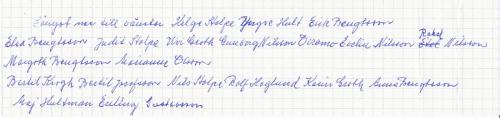 Längst ner till vänster Helge Stolpe Yngve Hult Erik Bengtsson
Elsa Bengtsson Judit Stolpe Viv Groth Gunborg Nilsson Evelin Nilsson Rakel Nilsson
Margoth Bengtsson Marianne Olsson
Bertil Krogh Bertil Nils Stolpe Rolf Hoglund Karin Groth Anna Bengtsson
Maj Hultman Erling Gustavsson